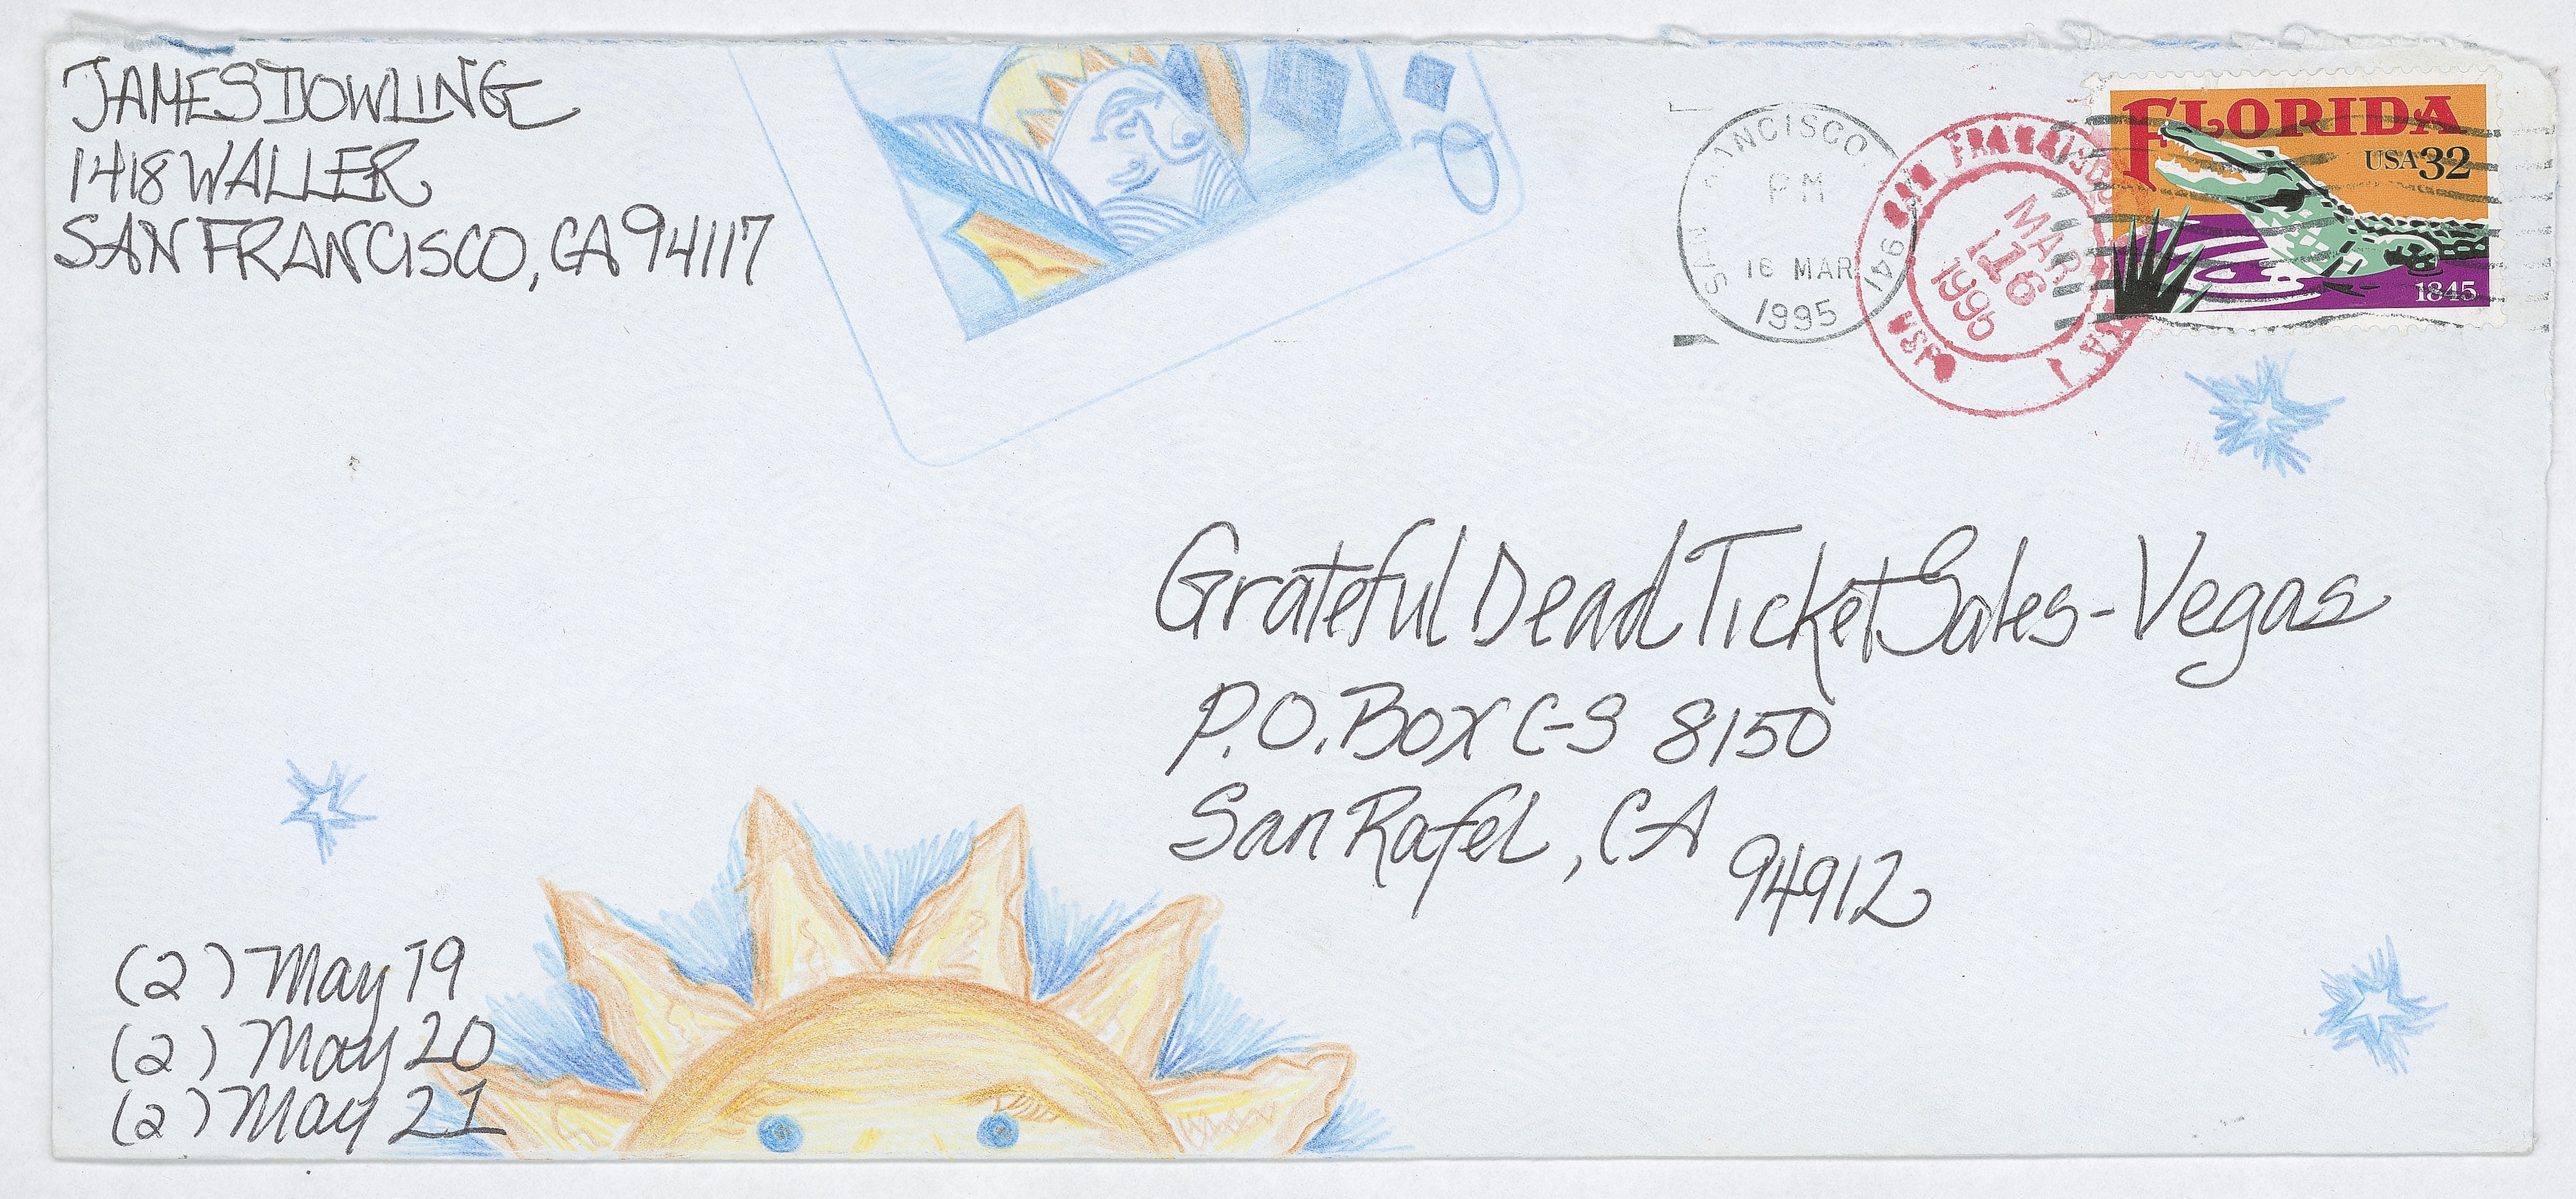 JAMES DOWLING
1418 WALLER
SAN FRANCISCO, CA 94117
Q
SAN FRANCISCO 941
PM
16 MAR
1995
SAN FRANCISCO
MAR
16
1995
USPO
FLORIDA
USA 32
1845
Grateful Dead Ticket Sales - Vegas
P.O. Box C-S 8150
San Rafel, CA 94912
(2) May 19
(2) May 20
(2) May 21